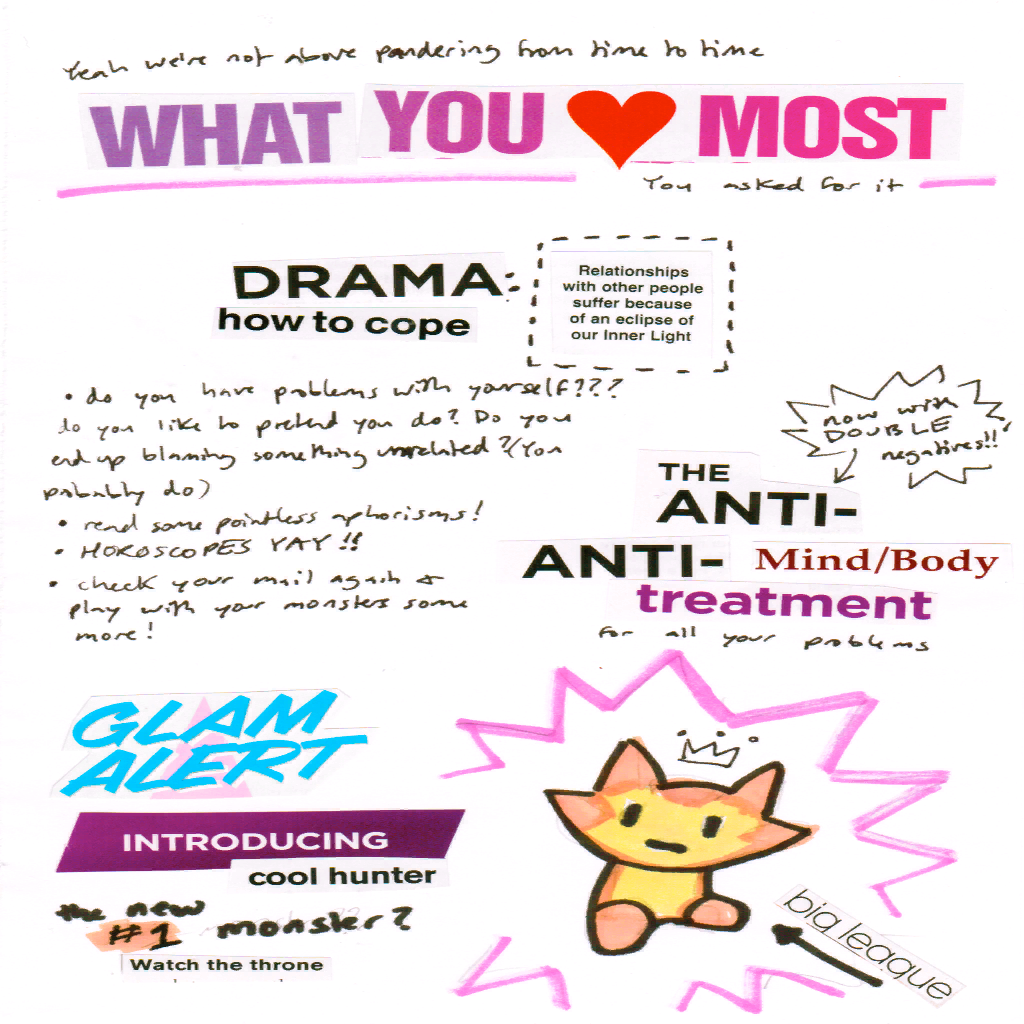 Yeah we're not above pandering from time to time
WHAT YOU ❤ MOST
You asked for it
DRAMA:
how to cope
Relationships
with other people
suffer because
of an eclipse of
our Inner Light
• do you have problems with yourself???
do you like to pretend you do? Do you
end up blaming something unrelated? (You
probably do)
• read some pointless aphorisms!
• HOROSCOPES YAY!!
• check your mail again &
play with your monsters some
more!
now with
DOUBLE
negatives!!
THE
ANTI-
ANTI- Mind/Body
treatment
for all your problems
GLAM
ALERT
INTRODUCING
cool hunter
the new
#1 monster?
Watch the throne
big league